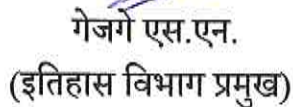 गेजगे एस.एन.
(इतिहास विभाग प्रमुख)